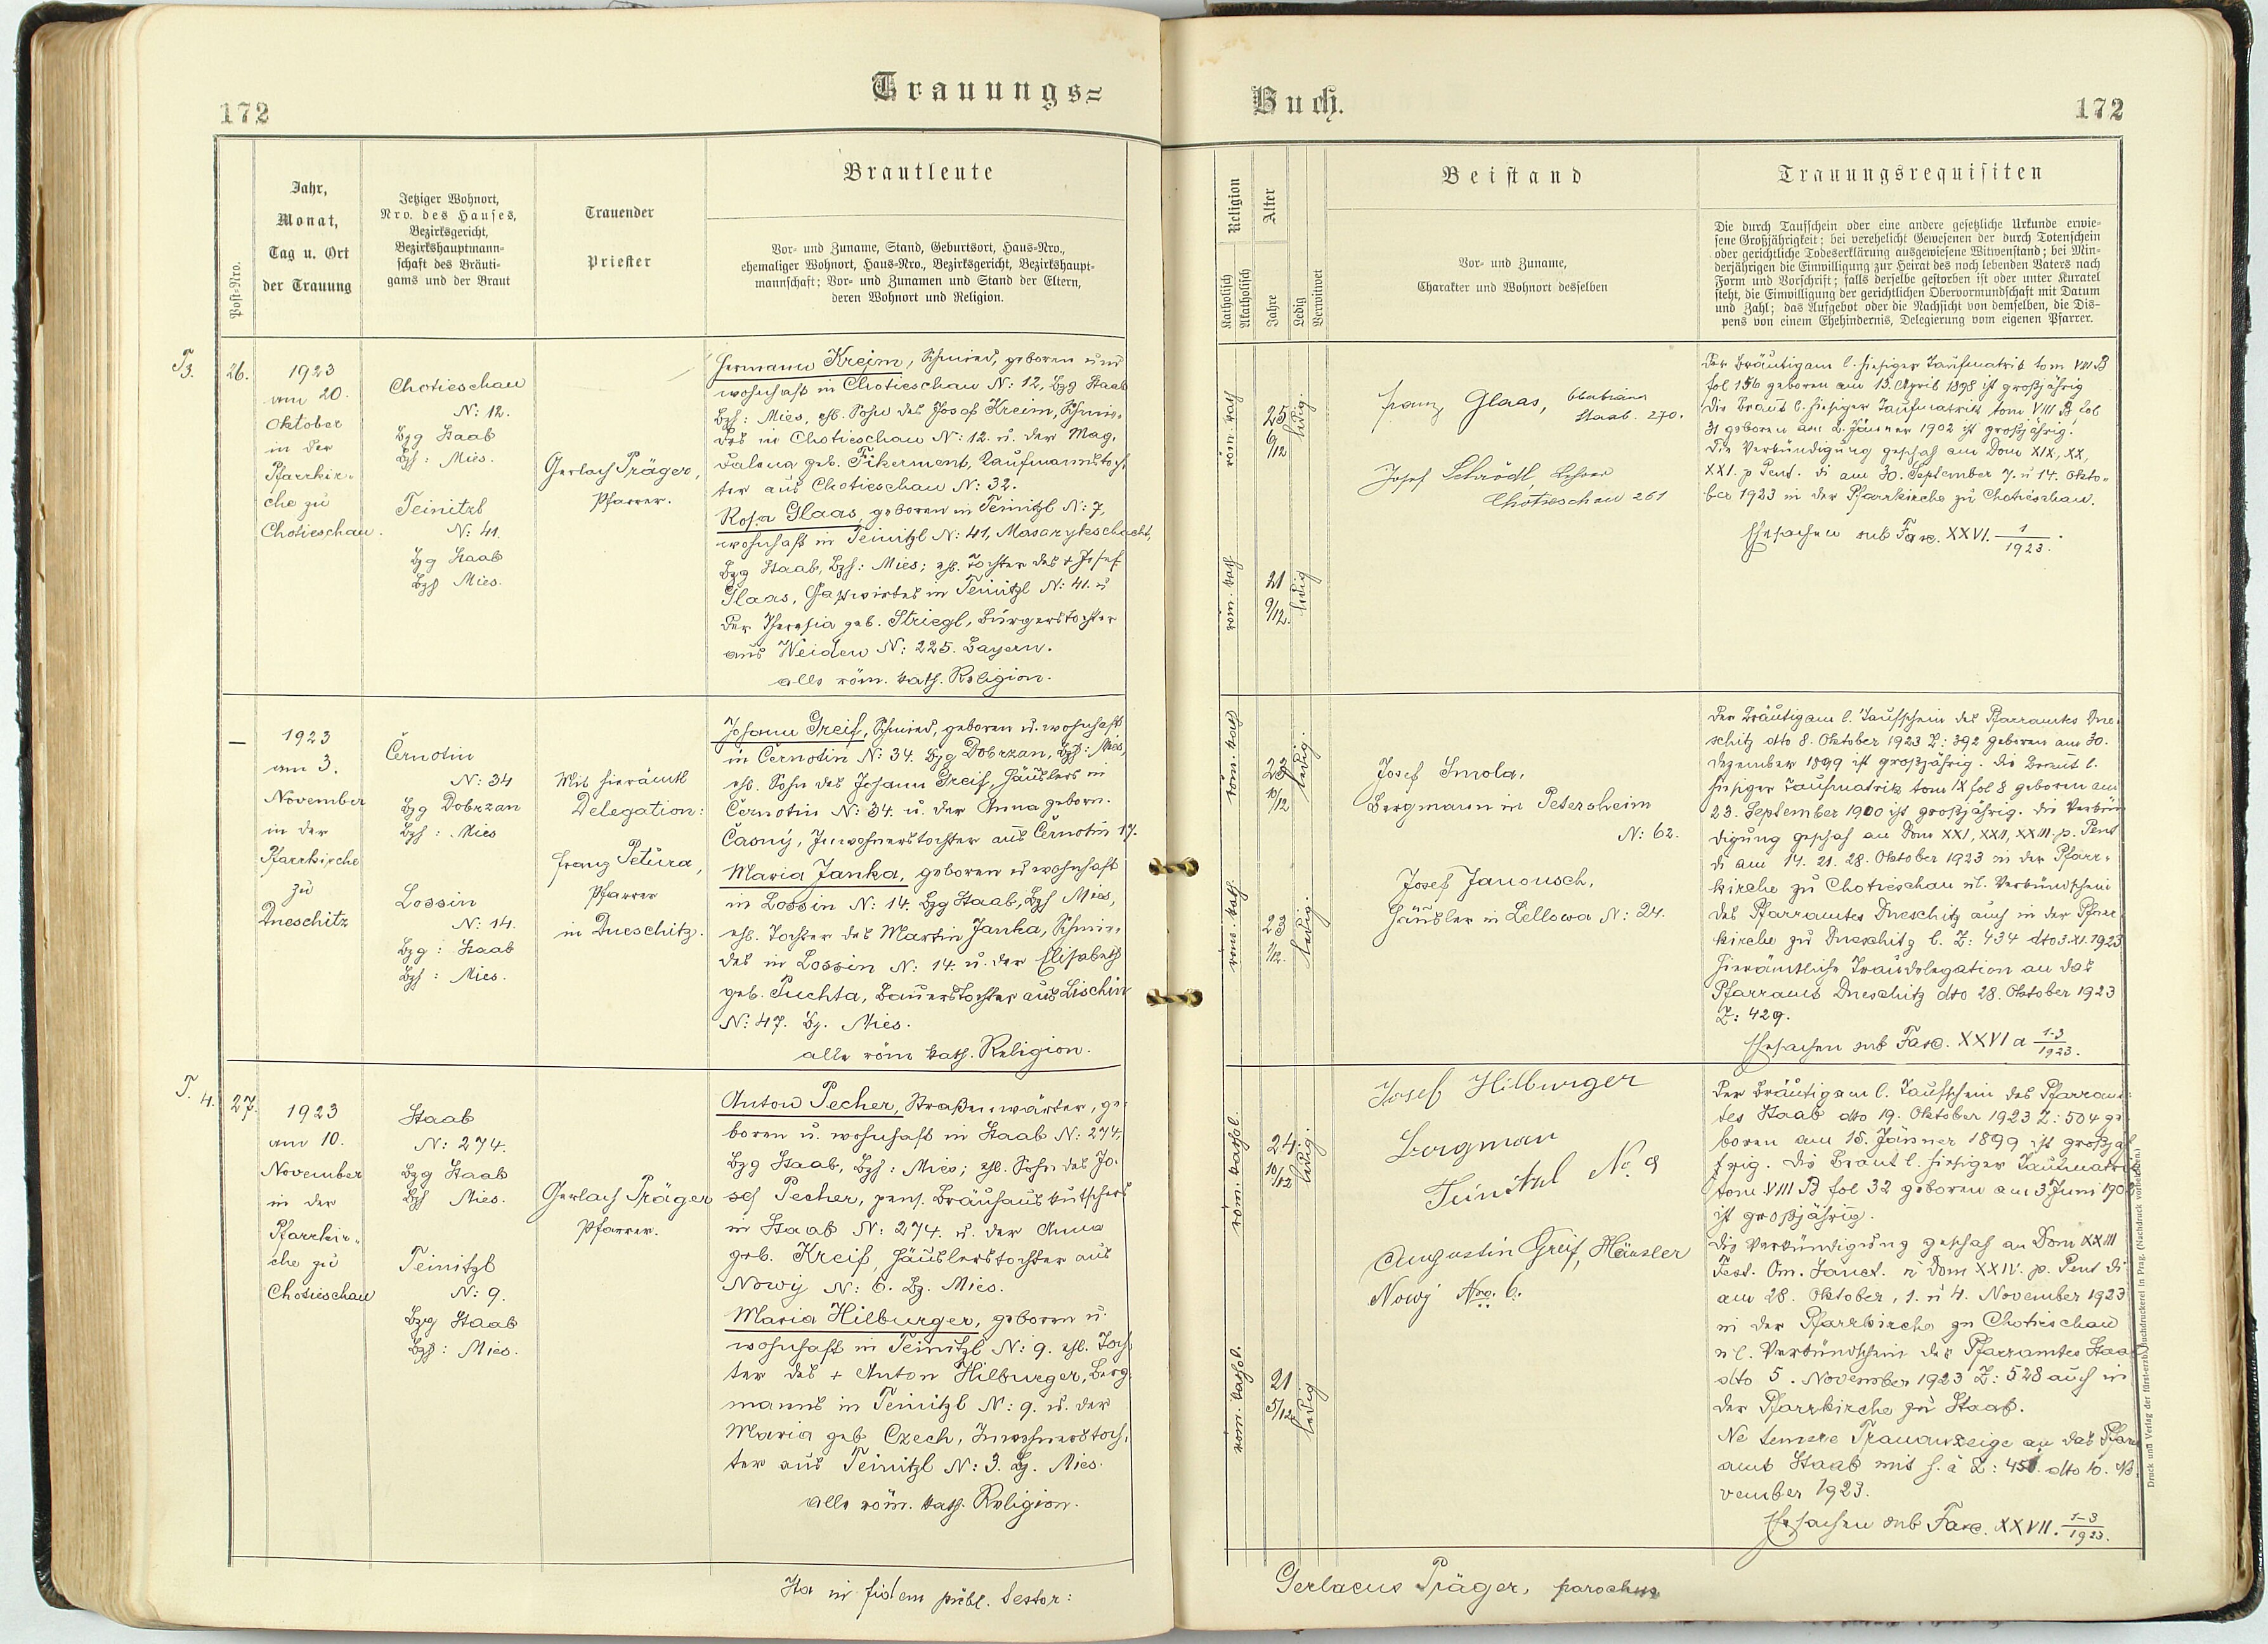 172
Trauungs=
Post=Nro.
Jahr,
Monat,
Tag u. Ort
der Trauung
Jetziger Wohnort,
Nro. des Hauses,
Bezirksgericht,
Bezirkshauptmann=
schaft des Bräuti=
gams und der Braut
Trauender
Priester
Brautleute
Vor= und Zuname, Stand, Geburtsort, Haus=Nro.,
ehemaliger Wohnort, Haus=Nro., Bezirksgericht, Bezirkshaupt=
mannschaft; Vor= und Zunamen und Stand der Eltern,
deren Wohnort und Religion.
T3.
26.
1923
am 20.
Oktober
in der
Pfarrkir=
che zu
Chotieschau.
Chotieschau
N: 12.
Bzg Staab
Bzh: Mies.
Teinitzl
N: 41.
Bzg Staab
Bzh Mies.
Gerlach Präger,
Pfarrer.
Hermann Krejm, Schmied, geboren und
wohnhaft in Chotieschau N: 12, Bzg Staab
Bzh: Mies, ehl. Sohn des Josef Kreim, Schmie=
des in Chotieschau N: 12. u. der Mag=
dalena geb. Fikerment, Kaufmannstoch
ter aus Chotieschau N: 32.
Rosa Glaas, geboren in Teinitzl N: 7,
wohnhaft in Teinitzl N: 41, Masarykschacht,
Bzg Staab, Bzh: Mies; ehl. Tochter des + Josef
Glaas, Gastwirtes in Teinitzl N: 41. u
der Theresia geb. Striegl, Bürgerstochter
aus Weiden N: 225. Bayern.
alle röm. kath. Religion.
—
1923
am 3.
November
in der
Pfarrkirche
zu
Dneschitz
Černotin
N: 34
Bzg Dobrzan
Bzh: Mies
Lossin
N: 14.
Bzg: Staab
Bzh: Mies.
Mit hierämtl
Delegation:
Franz Petura,
Pfarrer
in Dneschitz.
Johann Greif, Schmied, geboren u. wohnhaft
in Černotin N: 34. Bzg Dobrzan, Bzh: Mies,
ehl. Sohn des Johann Greif, Häuslers in
Černotin N: 34. u. der Anna geborn.
Časný, Inwohnerstochter aus Černotin 17.
Maria Janka, geboren u wohnhaft
in Lossin N: 14. Bzg Staab, Bzh Mies,
ehl. Tochter des Martin Janka, Schmie=
des in Lossin N: 14. u. der Elisabeth
geb. Puchta, Bauerstochter aus Lischin
N: 47. Bz. Mies.
alle röm kath. Religion.
T. 4.
27.
1923
am 10.
November
in der
Pfarrkir=
che zu
Chotieschau
Staab
N: 274.
Bzg Staab
Bzh Mies.
Teinitzl
N: 9.
Bzg Staab
Bzh: Mies.
Gerlach Präger
Pfarrer.
Anton Pecher, Straßenwärter, ge=
boren u. wohnhaft in Staab N: 274,
Bzg Staab, Bzh: Mies; ehl. Sohn des Jo=
sef Pecher, pens. Bräuhauskutschers
in Staab N: 274. u. der Anna
geb. Kreif, Häuslerstochter aus
Nowy N: 6. Bz. Mies.
Maria Hilburger, geboren u
wohnhaft in Teinitzl N: 9. ehl. Toch=
ter des + Anton Hilburger, Berg
manns in Teinitzl N: 9. u. der
Maria geb Czech, Inwohnerstoch=
ter aus Teinitzl N: 3. Bz. Mies.
alle röm. kath. Religion.
Ita in fidem publ. testor:
Buch.
172
Religion
Katholisch
Akatholisch
Alter
Jahre
Ledig
Verwitwet
Beistand
Vor= und Zuname,
Charakter und Wohnort desselben
Trauungsrequisiten
Die durch Taufschein oder eine andere gesetzliche Urkunde erwie=
sene Großjährigkeit; bei verehelicht Gewesenen der durch Totenschein
oder gerichtliche Todeserklärung ausgewiesene Witwenstand; bei Min=
derjährigen die Einwilligung zur Heirat des noch lebenden Vaters nach
Form und Vorschrift; falls derselbe gestorben ist oder unter Kuratel
steht, die Einwilligung der gerichtlichen Obervormundschaft mit Datum
und Zahl; das Aufgebot oder die Nachsicht von demselben, die Dis=
pens von einem Ehehindernis, Delegierung vom eigenen Pfarrer.
röm. kath
25
6/12
ledig.
röm. kath
21
9/12.
ledig
Franz Glaas,
Staab. 270.
Josef Schrödl, Lehrer
Chotieschau 261
Der Bräutigam l. hiesiger Taufmatrik tom VIII B
fol 156 geboren am 13. April 1898 ist großjährig
Die Braut l. hiesiger Taufmatrik tom VIII B, fol
31 geboren am 2. Jänner 1902 ist großjährig.
Die Verkündigung geschah am Dom XIX, XX,
XXI. p Pent. di am 30. September 7. u 14. Okto=
ber 1923 in der Pfarrkirche zu Chotieschau.
Ehesachen sub Fasc. XXVI. 1/1923.
röm. kath
23
10/12
ledig.
röm. kath.
23
1/12.
ledig.
Josef Smola,
Bergmann in Petersheim
N: 62.
Josef Janousch,
Häusler in Zellowa N: 24.
Der Bräutigam l. Taufschein des Pfarramts Dne=
schitz dto 8. Oktober 1923 Z: 392 geboren am 30.
Dezember 1899 ist großjährig. Die Braut l.
hiesiger Taufmatrik tom IX fol 8 geboren am
23. September 1900 ist großjährig. Die Verkün
digung geschah an Dom XXI, XXII, XXIII. p. Pent
di am 14. 21. 28. Oktober 1923 in der Pfarr=
kirche zu Chotieschau u l. Verkündschein
des Pfarramtes Dneschitz auch in der Pfarr
kirche zu Dneschitz l. Z: 434 dto 3. XI. 1923
Hierämtliche Traudelegation an das
Pfarramt Dneschitz dto 28. Oktober 1923
Z: 429.
Ehesachen sub Fasc. XXVI a 1-3/1923.
röm. kathol.
24.
10/12
ledig.
röm. kathol.
21
5/12
ledig
Josef Hilburger
Bergman
Teinitzl No. 9
Augustin Greif, Häusler
Nowy Nro. 6.
Der Bräutigam l. Taufschein des Pfarram=
tes Staab dto 19. Oktober 1923 Z: 504 ge=
boren am 15. Jänner 1899 ist großjäh
rig. Die Braut l. hiesiger Taufmatrik
tom VIII B fol 32 geboren am 3. Juni 1902
ist großjährig.
Die Verkündigung geschah an Dom XXIII
Fest. Om. Sanct. u Dom XXIV. p. Pent di
am 28. Oktober, 1. u 4. November 1923
in der Pfarrkirche zu Chotieschau
u l. Verkündschein des Pfarramtes Staab
dto 5. November 1923 Z: 528 auch in
der Pfarrkirche zu Staab.
Ne temere Trauanzeige an das Pfarr
amt Staab mit h. ä Z: dto 10. No
vember 1923.
Ehesachen sub Fasc. XXVII. 1-3/1923.
Gerlacus Präger, parochus
Druck und Verlag der fürst-erzb. Buchdruckerei in Prag. (Nachdruck vorbehalten.)